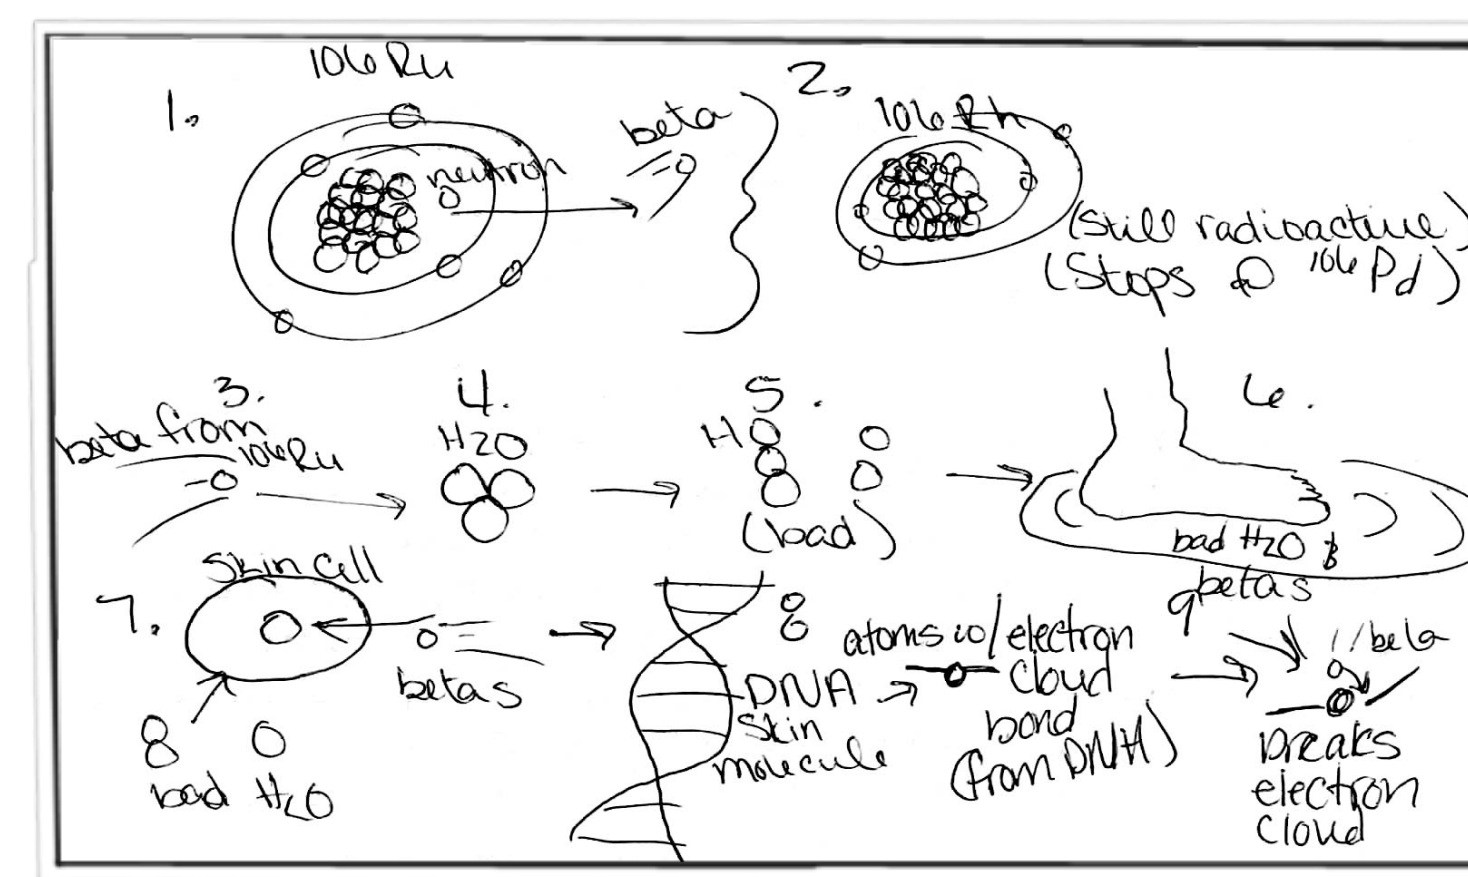 106 Ru
1.
neutron
beta
2.
106 Rh
(Still radioactive)
(Stops @ 106 Pd)
3.
beta from
106Ru
4.
H2O
5.
H
(bad)
6.
bad H2O &
betas
7.
Skin Cell
betas
bad H2O
8
DNA
Skin
molecule
atoms w/ electron
cloud
bond
(from DNA)
9
beta
breaks
electron
cloud